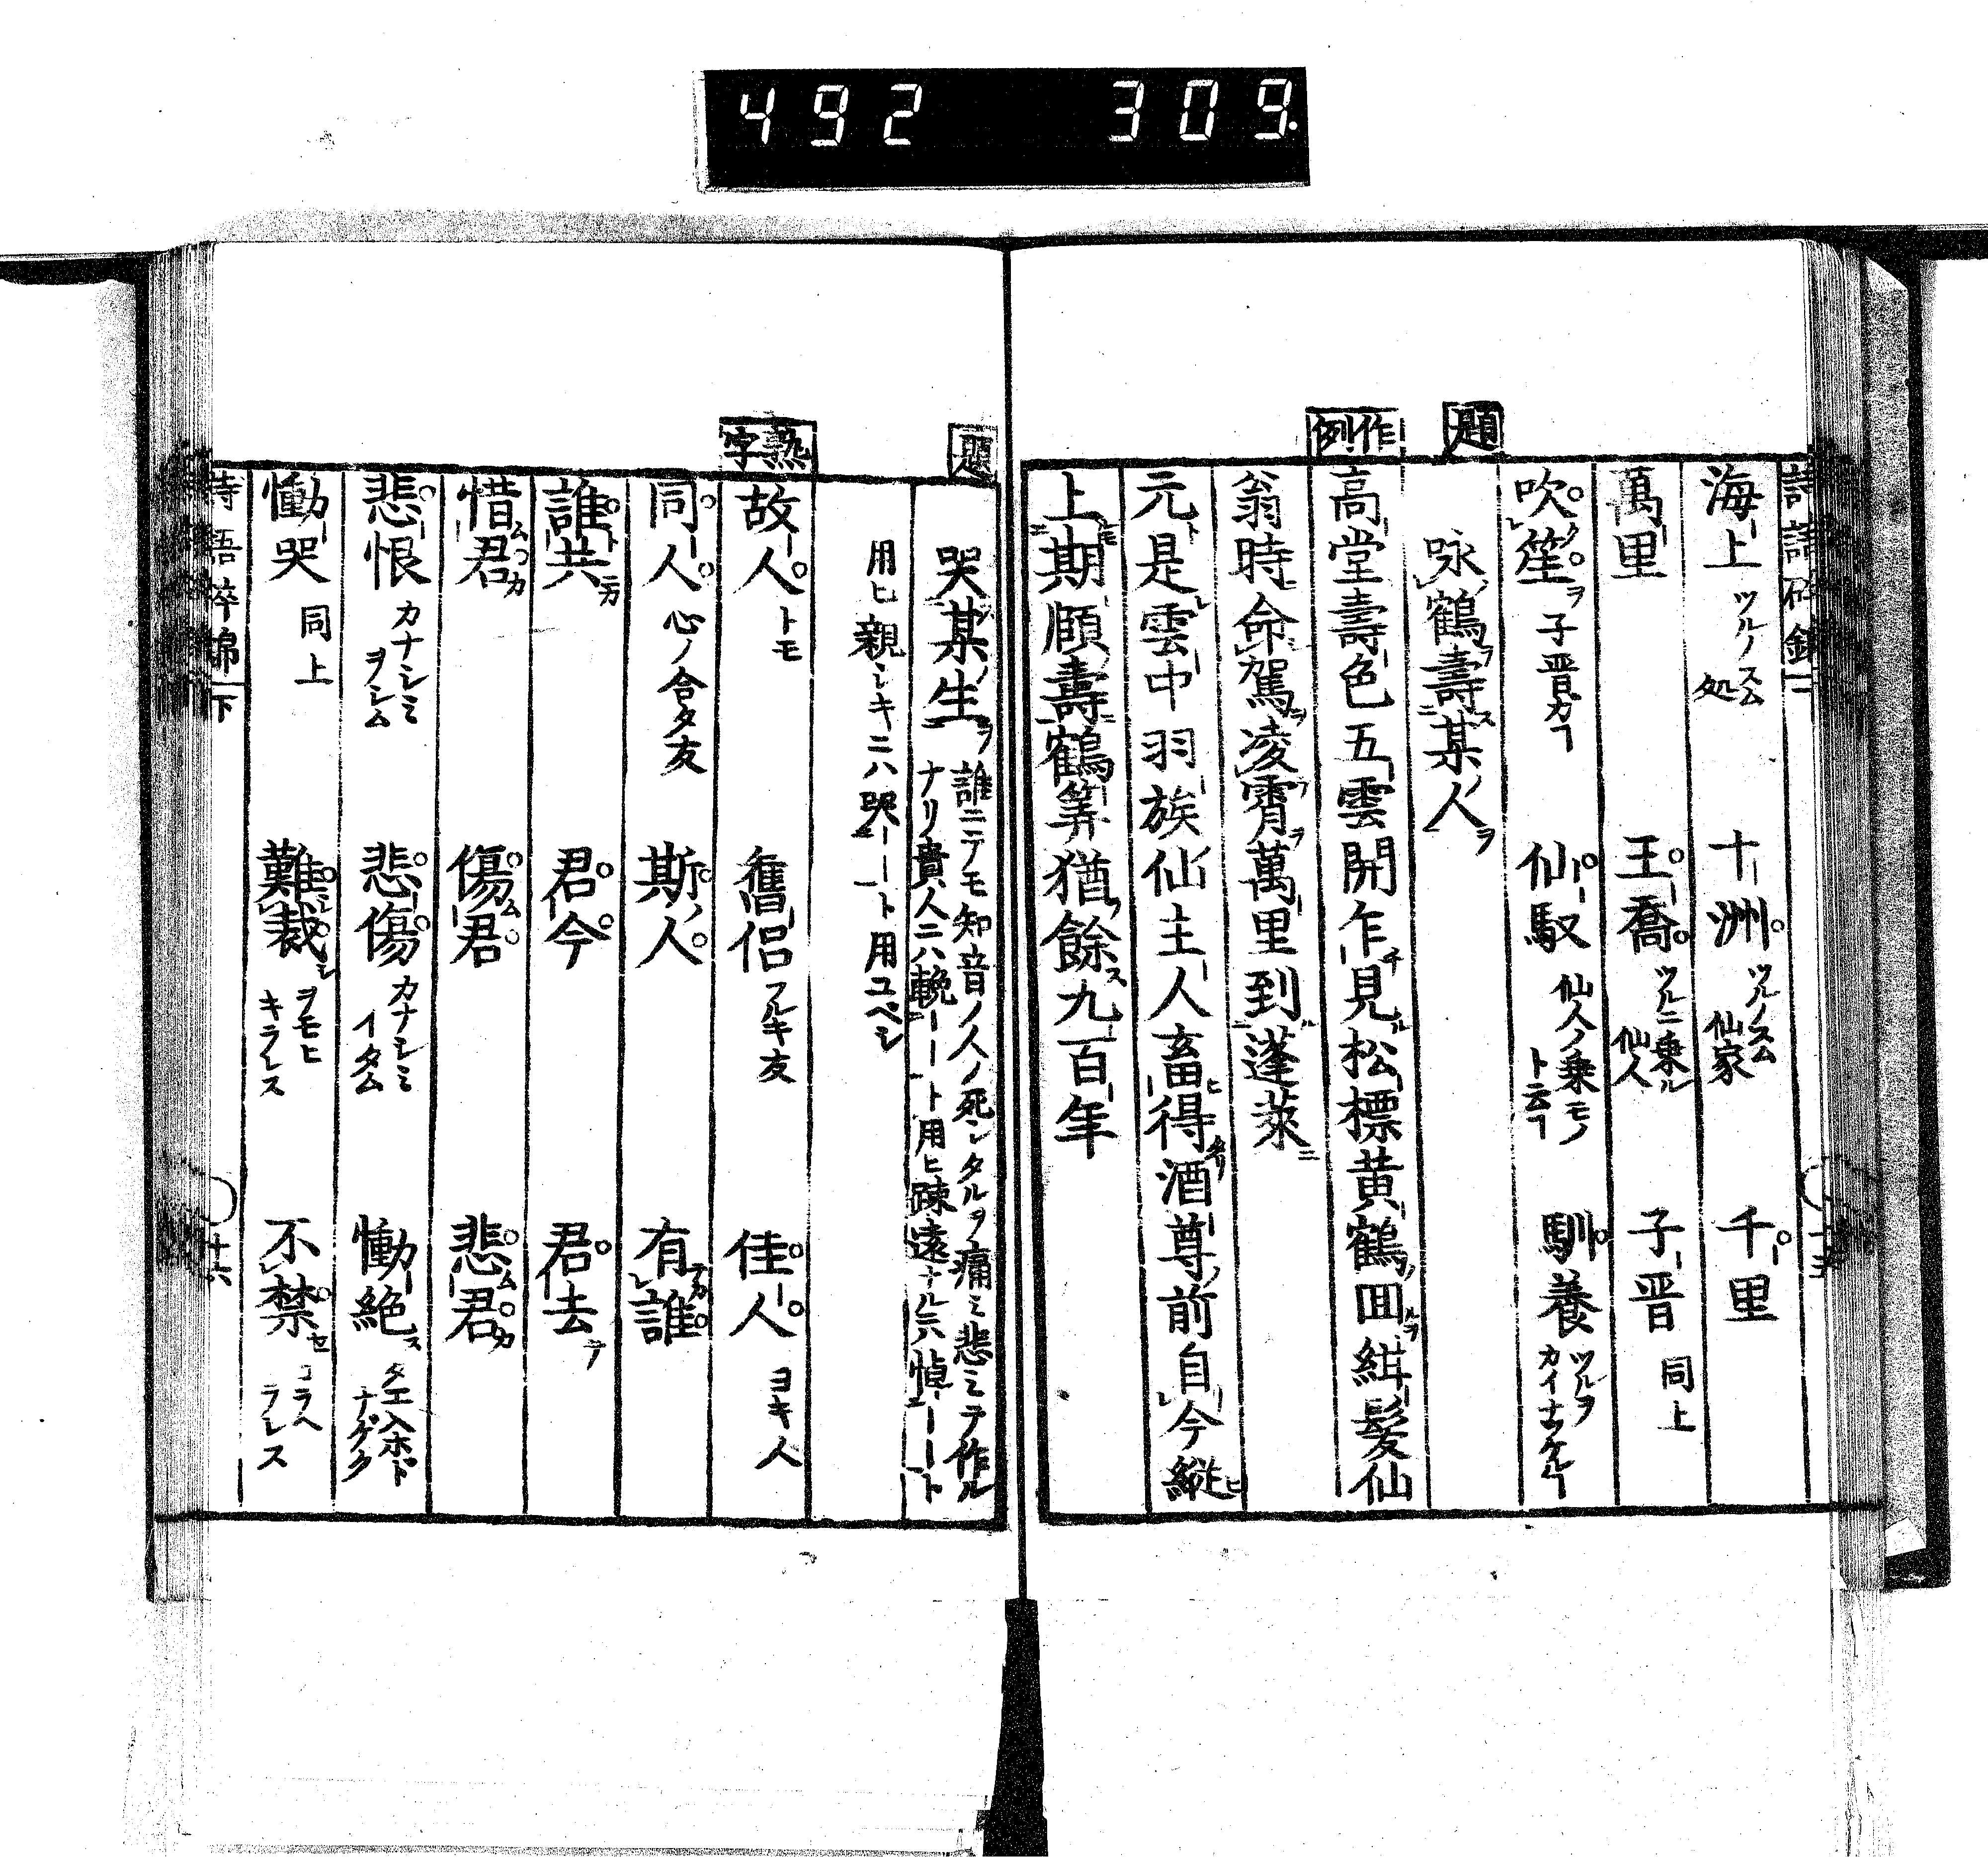 492 309.
海上 ツルノスム処 十洲 ツルノスム仙家 千里
萬里 王喬 ツルニ乗ル仙人 子晋 同上
吹笙ヲ 子晋カヿ 仙馭 仙人ノ乗モノト云ヿ 馴養 ツルヲカイナツケルヿ
題
咏鶴壽某人ヲ
作例
高堂壽色五雲開乍見松標黄鶴回綵髪仙
翁時命駕凌霄萬里到蓬萊
元是雲中羽族仙主人畜得酒尊前自今縦
上期頤壽鶴筭猶餘九百年
題
哭某生ヲ 誰ニテモ知音ノ人ノ死シタルヲ痛ミ悲ミテ作ル
ナリ貴人ニハ輓――ト用ヒ疎遠ナルニハ悼――ト
用ヒ親シキニハ哭――ト用ユベシ
熟字
故人 トモ 舊侶 フルキ友 佳人 ヨキ人
同人 心ノ合タ友 斯人 有誰
誰共 君今 君去テ
惜君 傷君 悲君
悲恨 カナシミヲシム 悲傷 カナシミイタム 慟絶ス タエ入ホドナゲク
慟哭 同上 難裁シ ヲモヒキラレス 不禁セ コラヘラレス
詩語碎錦 下 十六